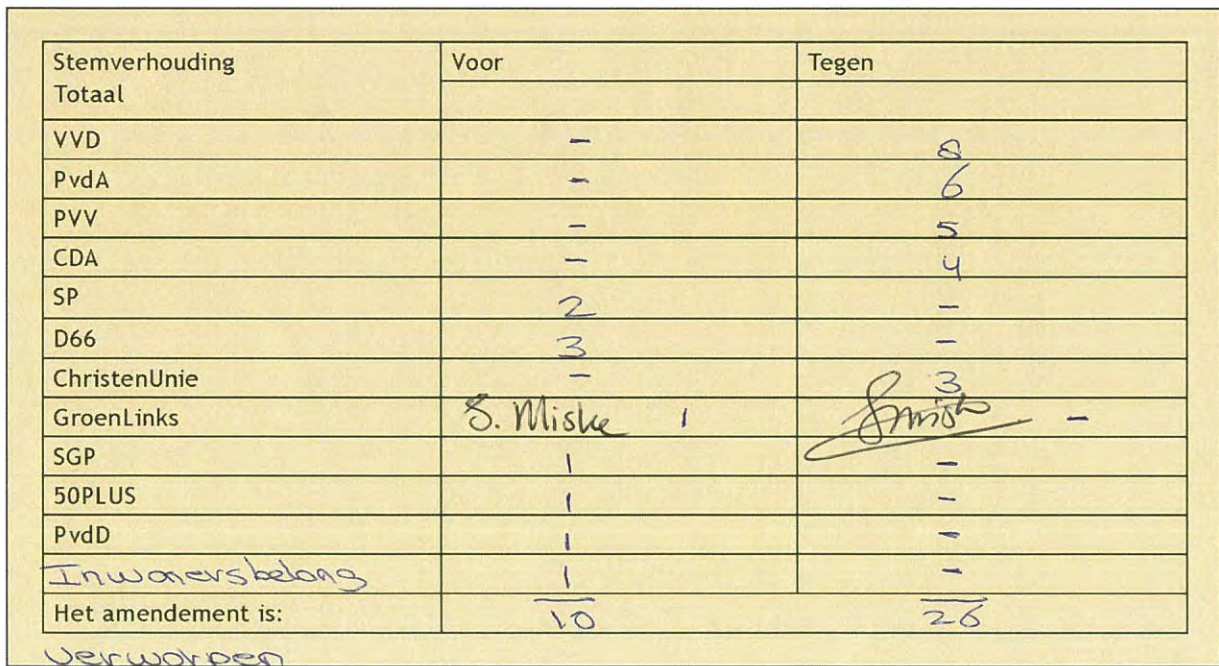 Stemverhouding Voor Tegen
Totaal
VVD - 8
PvdA - 6
PVV - 5
CDA - 4
SP 2 -
D66 3 -
ChristenUnie - 3
GroenLinks S. Miske 1 -
SGP 1 -
50PLUS 1 -
PvdD 1 -
Inwonersbelang 1 -
Het amendement is: 10 26
verworpen